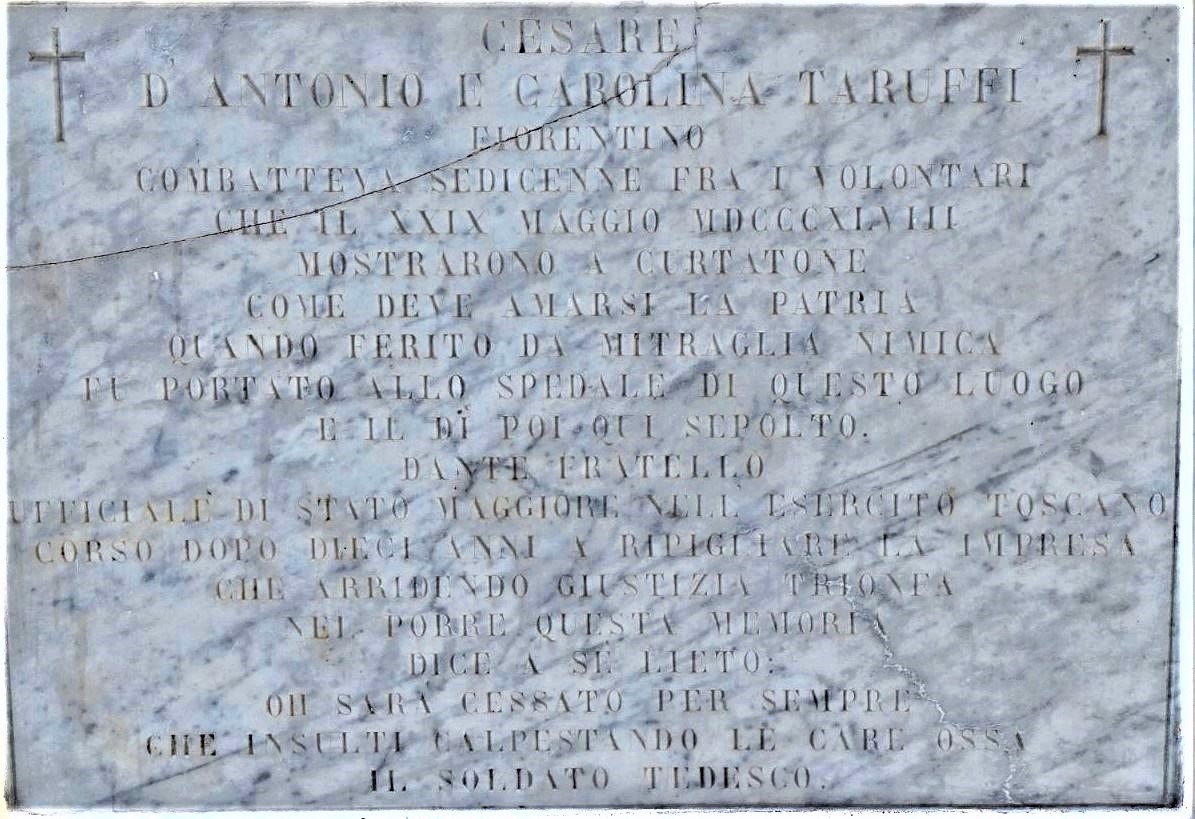 CESARE
D'ANTONIO E CAROLINA TARUFFI
FIORENTINO
COMBATTEVA SEDICENNE FRA I VOLONTARI
CHE IL XXIX MAGGIO MDCCCXLVIII
MOSTRARONO A CURTATONE
COME DEVE AMARSI LA PATRIA
QUANDO FERITO DA MITRAGLIA NIMICA
FU PORTATO ALLO SPEDALE DI QUESTO LUOGO
E IL DÌ POI QUI SEPOLTO.
DANTE FRATELLO
UFFICIALE DI STATO MAGGIORE NELL ESERCITO TOSCANO
CORSO DOPO DIECI ANNI A RIPIGLIARE LA IMPRESA
CHE ARRIDENDO GIUSTIZIA TRIONFA
NEL PORRE QUESTA MEMORIA
DICE A SE LIETO:
OH SARÀ CESSATO PER SEMPRE
CHE INSULTI CALPESTANDO LE CARE OSSA
IL SOLDATO TEDESCO.